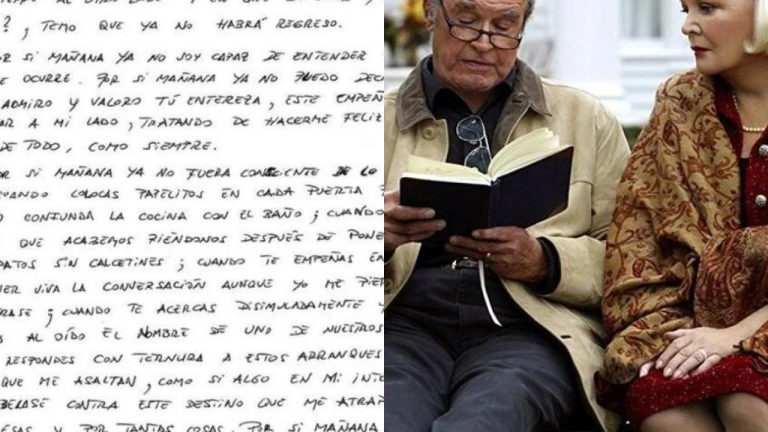 ?, TEMO QUE YA NO HABRÁ REGRESO.
OR SI MAÑANA YA NO SOY CAPAZ DE ENTENDER
E OCURRE. POR SI MAÑANA YA NO PUEDO DECI
ADMIRO Y VALORO TÚ ENTEREZA, ESTE EMPEÑ
AR A MI LADO, TRATANDO DE HACERME FELIZ
DE TODO, COMO SIEMPRE.
OR SI MAÑANA YA NO FUERA CONSCIENTE DE LO
CUANDO COLOCAS PAPELITOS EN CADA PUERTA
O CONFUNDA LA COCINA CON EL BAÑO; CUANDO
QUE ACABEMOS RIÉNDONOS DESPUÉS DE PONE
PATOS SIN CALCETINES; CUANDO TE EMPEÑAS EN
NER VIVA LA CONVERSACIÓN AUNQUE YO ME PIER
RASE; CUANDO TE ACERCAS DISIMULADAMENTE Y
S AL OÍDO EL NOMBRE DE UNO DE NUESTROS
RESPONDES CON TERNURA A ESTOS ARRANQUES
QUE ME ASALTAN, COMO SI ALGO EN MI INTE
BELASE CONTRA ESTE DESTINO QUE ME ATRAP
ESAS Y POR TANTAS COSAS. POR SI MAÑANA